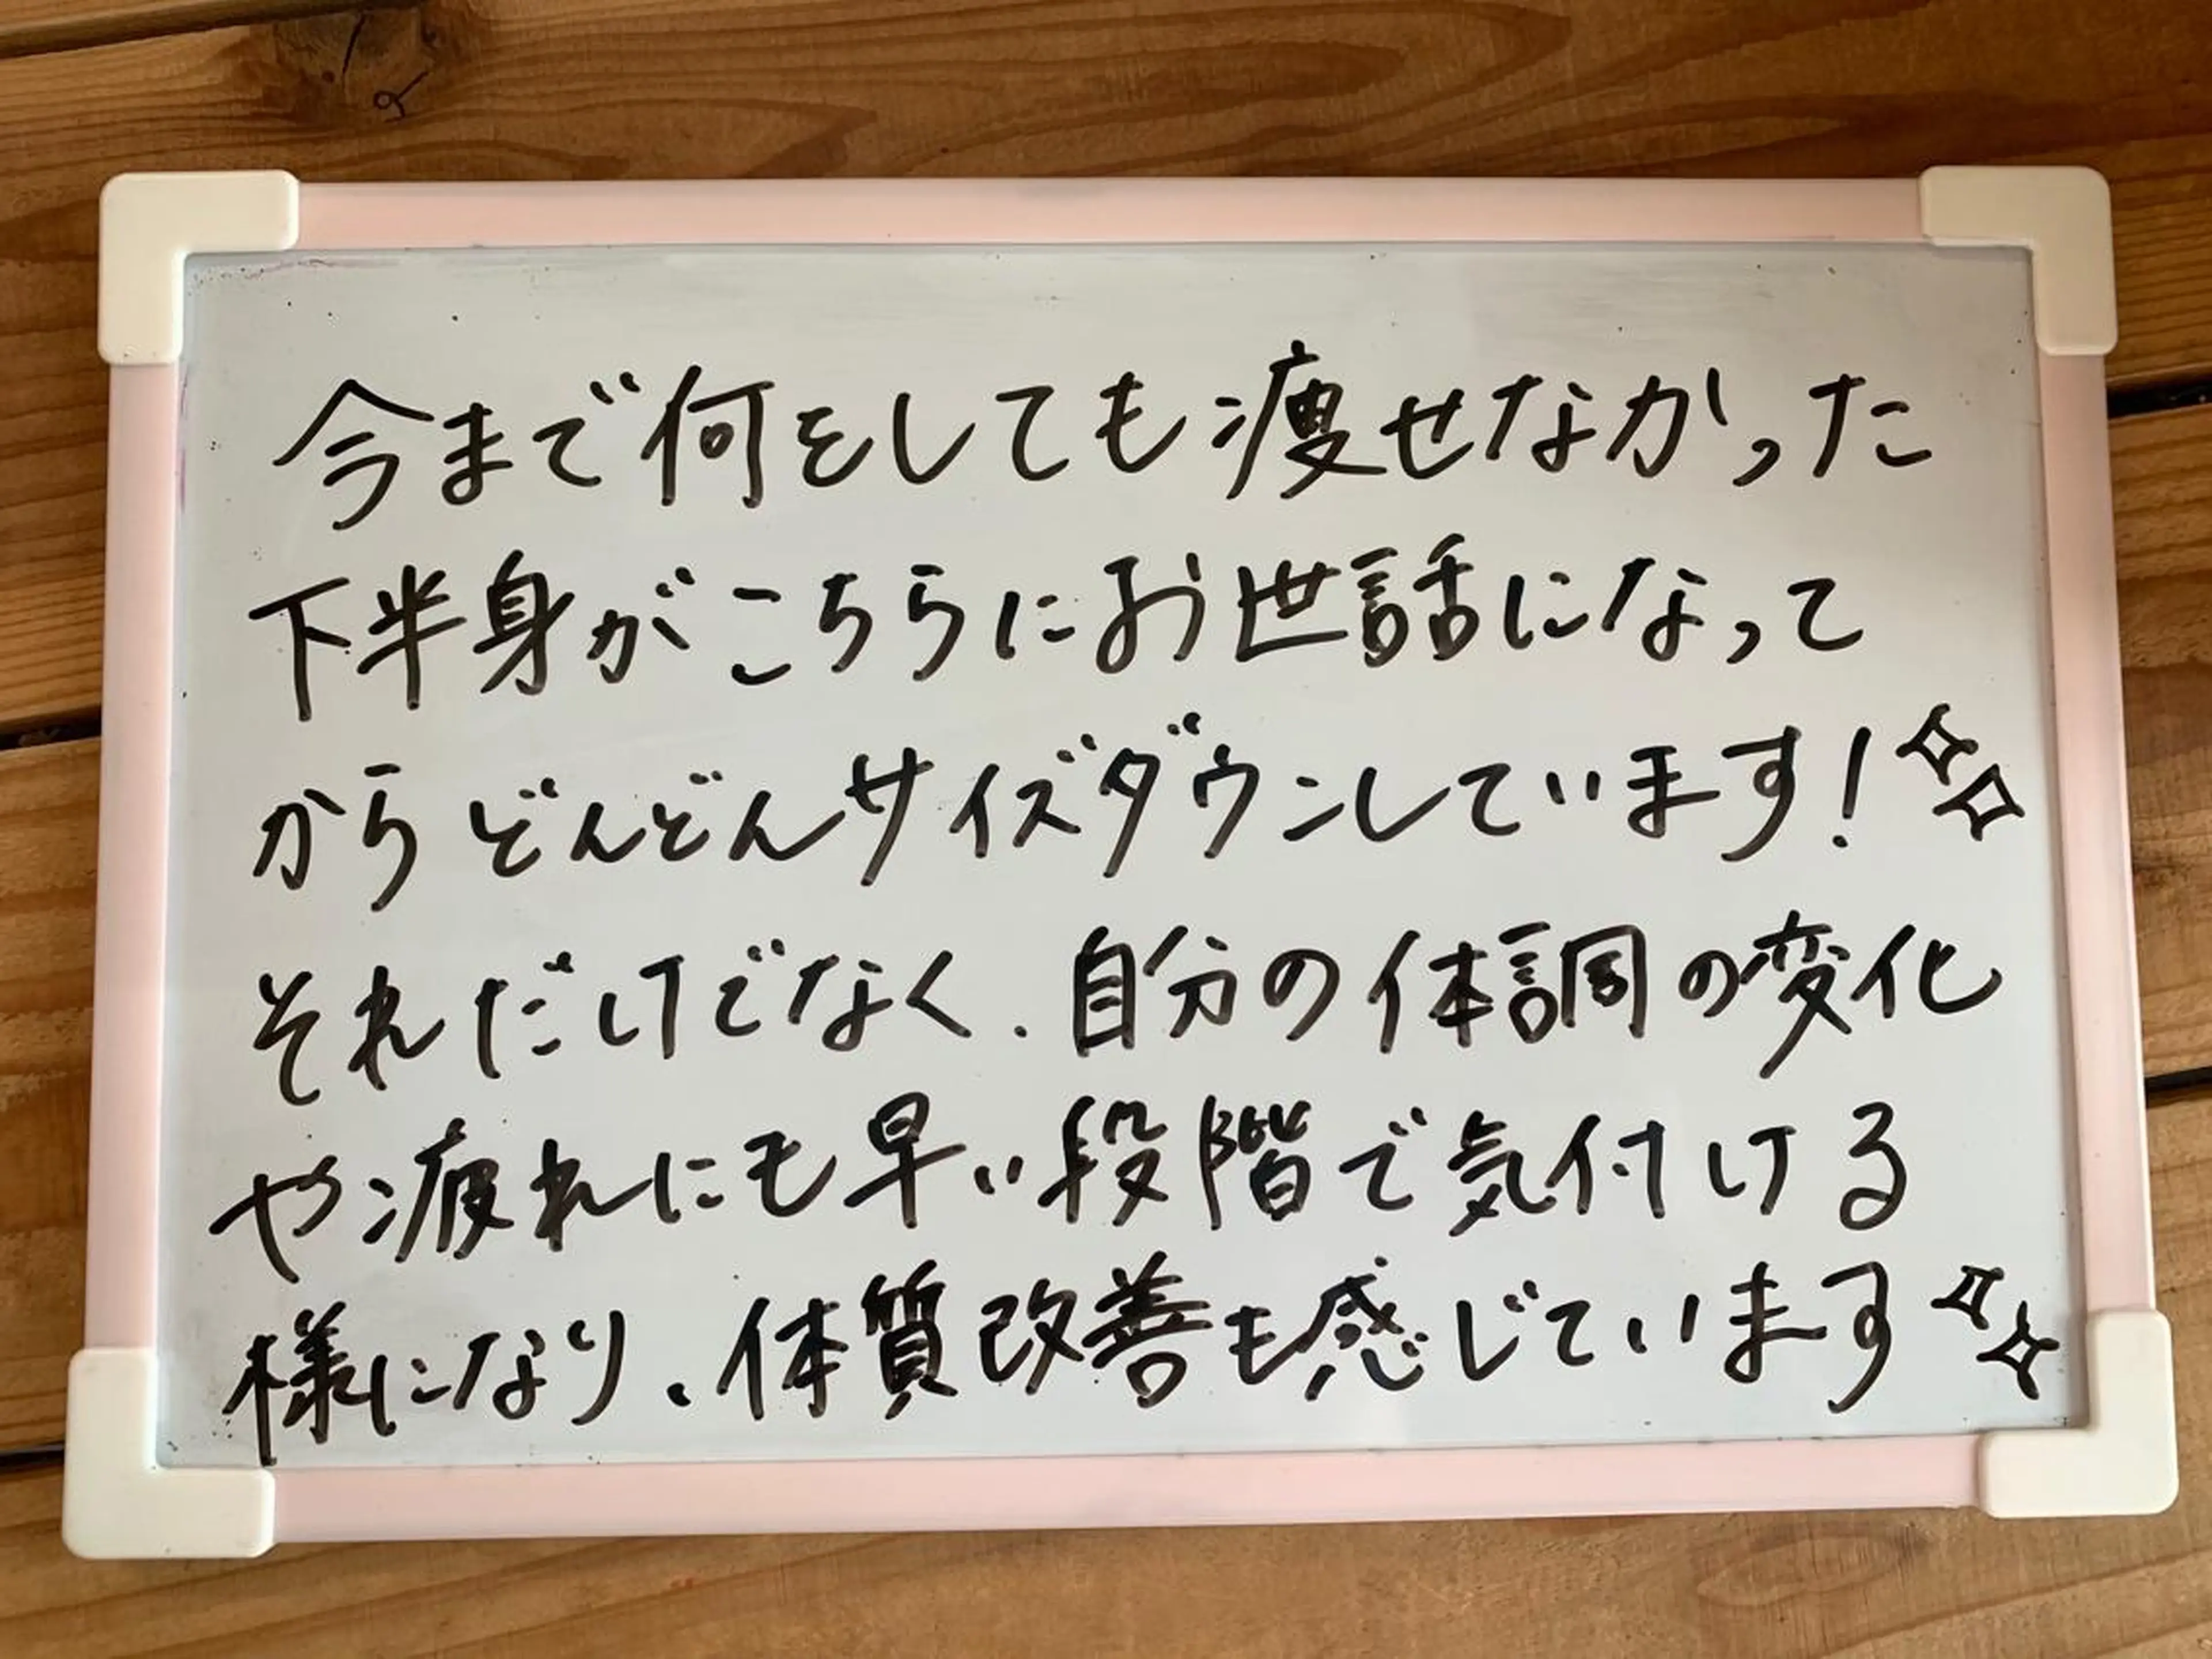 今まで何をしても痩せなかった
下半身がこちらにお世話になって
からどんどんサイズダウンしています!
それだけでなく、自分の体調の変化
や疲れにも早い段階で気付ける
様になり、体質改善も感じています